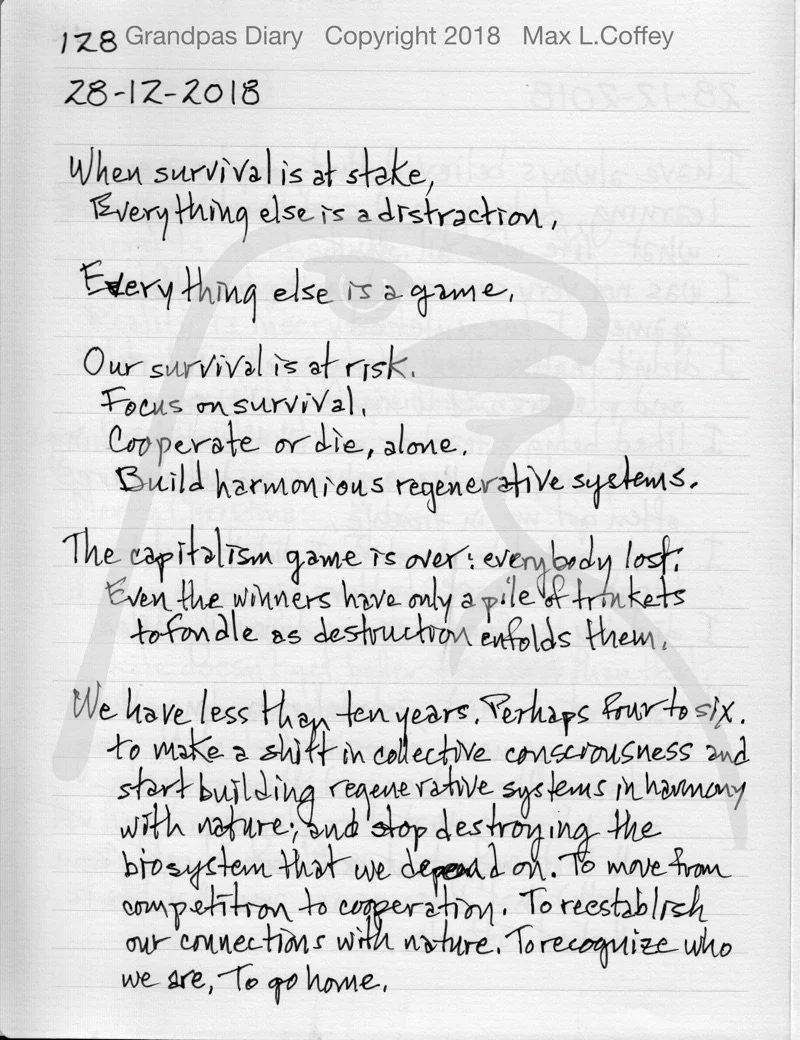 128 Grandpas Diary Copyright 2018 Max L.Coffey
28-12-2018
When survival is at stake,
Everything else is a distraction,
Everything else is a game,
Our survival is at risk.
Focus on survival,
Cooperate or die, alone.
Build harmonious regenerative systems.
The capitalism game is over: everybody lost;
Even the winners have only a pile of trinkets
to fondle as destruction enfolds them,
We have less than ten years. Perhaps four to six.
to make a shift in collective consciousness and
start building regenerative systems in harmony
with nature; and stop destroying the
biosystem that we depend on. To move from
competition to cooperation. To reestablish
our connections with nature. To recognize who
we are, To go home,